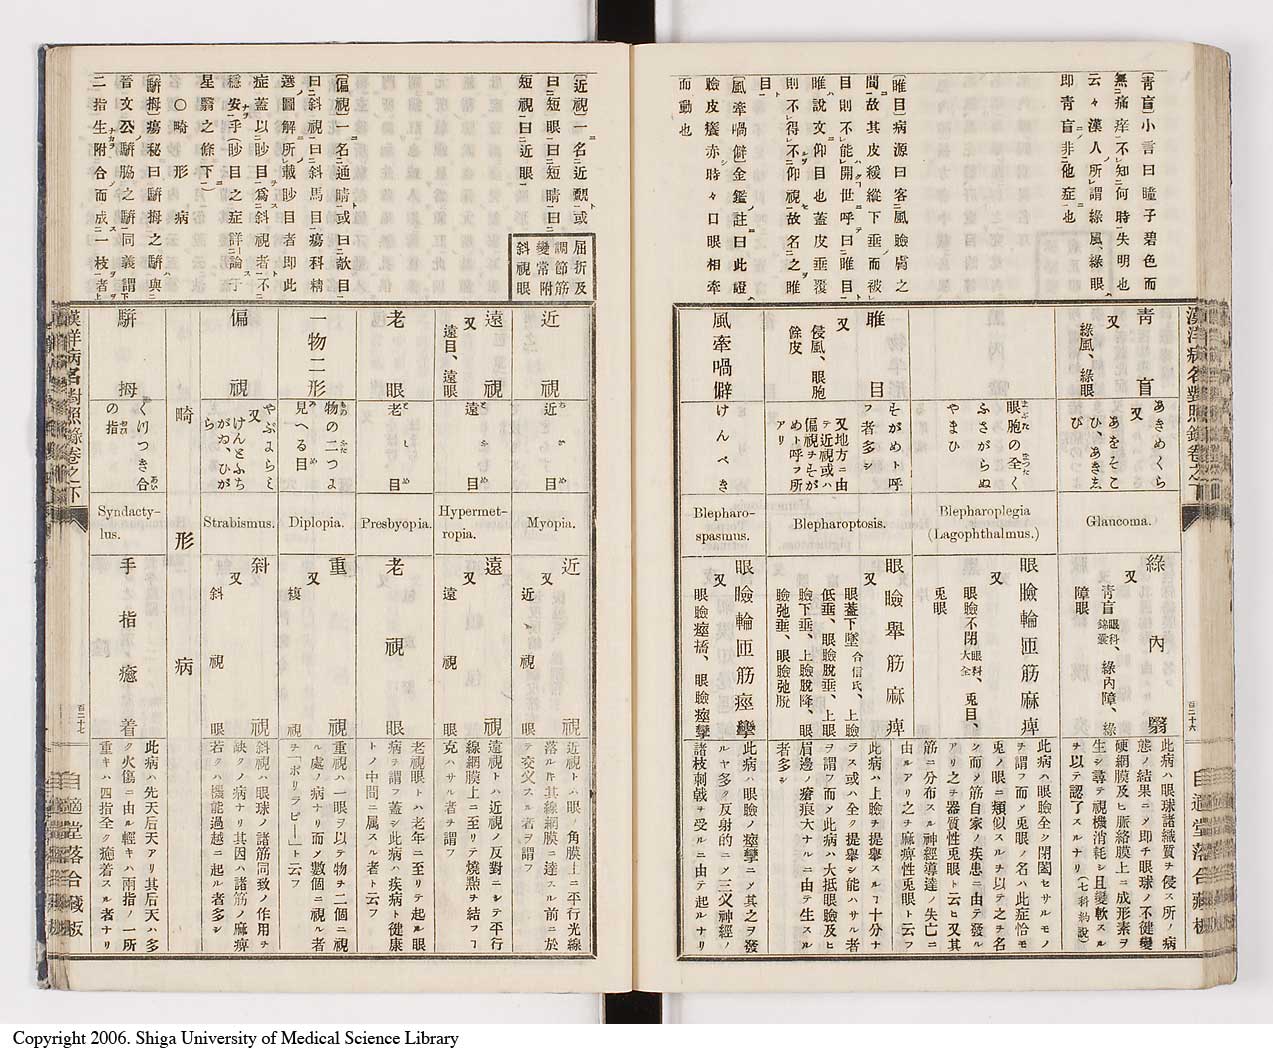 漢洋病名對照錄卷之下
青盲
又
綠風、綠眼
あきめくら
又
あをそこ
ひ、あきゑ
び
Glaucoma.
綠內翳
又
青盲眼科錦囊、綠內障、綠
障眼
此病ハ眼球諸織質ヲ侵ス所ノ病
態ノ結果ニノ即チ眼球ノ不健變
硬網膜及ヒ脈絡膜上ニ成形素ヲ
生シ尋テ視機消耗シ且變軟スル
ヲ以テ認了スルナリ(七科約說)
眼胞の全く
ふさがらぬ
やまひ
Blepharoplegia
(Lagophthalmus.)
眼瞼輪匝筋麻痺
又
眼瞼不閉眼科大全、兎目、
兎眼
此病ハ眼瞼全シ閉闔セサルモノ
ヲ謂フ而メ兎眼ノ名ハ此症恰モ
兎ノ眼ニ類似スルヲ以テ之ヲ名
シ而メ筋自家ノ疾患ニ由テ發ル
アリ之ヲ器質性兎眼ト云ヒ又其
筋ニ分布スル神經導達ノ失亡ニ
由ルアリ之ヲ麻痺性兎眼ト云フ
睢目
又
侵風、眼胞
餘皮
そがめト呼
フ者多シ
又地方ニ由
テ近視或ハ
偏視ヲそが
めト呼フ所
アリ
Blepharoptosis.
眼瞼舉筋麻痺
又
眼蓋下墜合信氏、上瞼
低垂、眼瞼脫垂、上眼
瞼下垂、上瞼脫降、眼
瞼弛垂、眼瞼弛脫
此病ハ上瞼ヲ提舉スルヿ十分ナ
ラス或ハ全ク提舉シ能ハサル者
ヲ謂フ而メ此病ハ大抵眼瞼及ヒ
眉邊ノ瘡痕大ナルニ由テ生スル
者多シ
風牽喎僻
けんべき
Blepharo-
spasmus.
眼瞼輪匝筋痙攣
又
眼瞼痙搐、眼瞼痙攣
此病ハ眼瞼ノ痙攣ニノ其之ヲ發
ルヤ多シ反射的ニノ三叉神經ノ
諸枝刺戟ヲ受ルニ由テ起ルナリ
(青盲)小言曰瞳子碧色而
無痛痒不知何時失明也
云々漢人所謂綠風、綠眼
即青盲非他症也
(睢目)病源曰客風瞼膚之
間故其皮緩縱下垂而被
目則不能開世呼曰睢目
睢說文仰目也蓋皮垂覆
則不得不仰視故名之睢
目
(風牽喎僻)金鑑註曰此證
瞼皮癢赤時々口眼相牽
而動也
百三十六
自適堂落合藏板
(近視)一名近覷或
曰短眼曰短睛曰
短視曰近眼
屈折及
調節筋
變常附
斜視眼
(偏視)一名通睛或曰歊目
曰斜視曰斜馬目瘍科精
選圖解所載眇目者即此
症蓋以眇目爲斜視者不
穩安乎(眇目之症詳論于
星翳之條下)
〇畸形病
(駢拇)瘍秘曰駢拇之駢與
晉文公駢脇之駢同義謂
二指生附合而成一枝者
近視
近目
Myopia.
近視
又
近視眼
近視トハ眼ノ角膜上ニ平行光線
落ルトキ其線網膜ニ達スル前ニ於
テ交叉スル者ヲ謂フ
遠視
又
遠目、遠眼
遠目
Hypermet-
ropia.
遠視
又
遠視眼
遠視トハ近視ノ反對ニノ平行
線網膜上ニ至リテ燒點ヲ結フヿ
克ハサル者ヲ謂フ
老眼
老目
Presbyopia.
老視眼
老視眼トハ老年ニ至リテ起ル眼
病ヲ謂フ蓋シ此病ハ疾病ト健康
トノ中間ニ属スル者ト云フ
一物二形
物の二つよ
見へる目
Diplopia.
重視
又
複視
重視ハ一眼ヲ以テ物ヲ二個ニ視
ル處ノ病ナリ而メ數個ニ視ル者
ヲ「ポリラピー」ト云フ
偏視
やぶよらミ
又
けんとふち
がね、ひが
ら
Strabismus.
斜視
又
斜視眼
斜視ハ眼球ノ諸筋同致ノ作用ヲ
缺クノ病ナリ其因ハ諸筋ノ麻痺
若クハ機能過越ニ起ル者多シ
畸形病
駢拇
くけつき合
の指
Syndacty-
lus.
手指癒着
此病ハ先天后天アリ其后天ハ多
ク火傷ニ由ル輕キハ兩指ノ一所
重キハ四指全ク癒着スル者ナリ
漢洋病名對照錄卷之下
百三十七
自適堂落合藏板
Copyright 2006. Shiga University of Medical Science Library